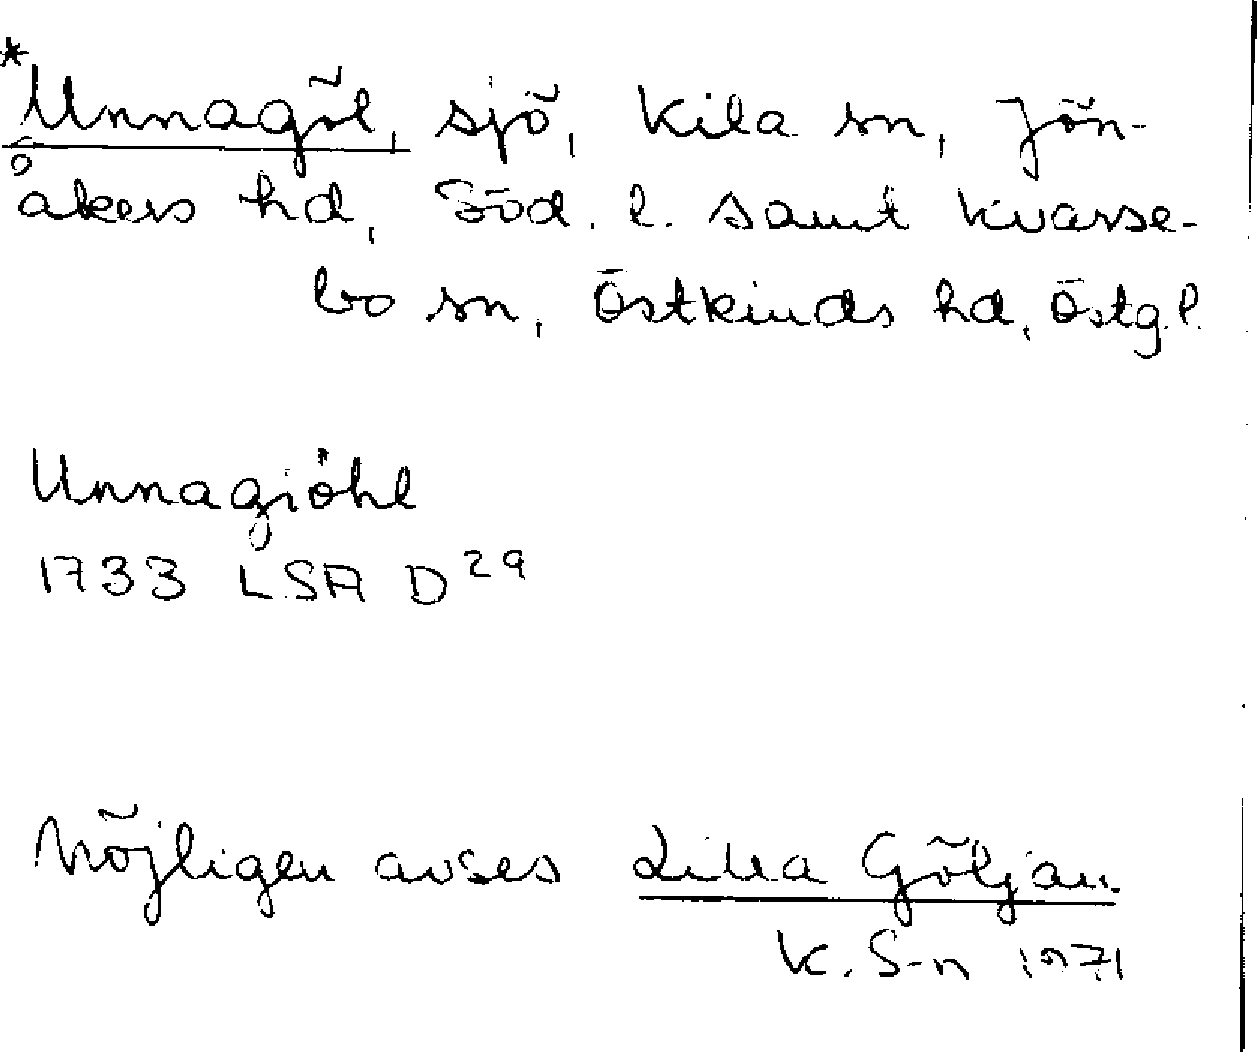 *Unnagöl, sjö, Kila sn, Jön-
åkers hd, Söd. l. samt Kvarse-
bo sn, Östkinds hd, Östg. l.
Unnagiöhl
1733 LSA D 29
Möjligen avses Lilla Göljan.
K. S-n 1971